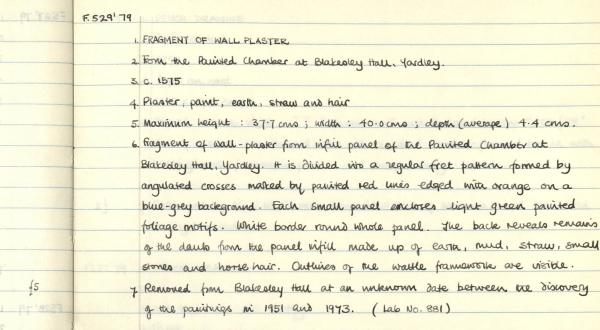 F.529'79
1. FRAGMENT OF WALL PLASTER
2. From the Painted Chamber at Blakesley Hall, Yardley.
3. c. 1575
4. Plaster, paint, earth, straw and hair
5. Maximum height : 37.7 cms ; width : 40.0 cms ; depth (average) 4.4 cms.
6. Fragment of wall-plaster from infill panel of the Painted Chamber at
Blakesley Hall, Yardley. It is divided into a regular fret pattern formed by
angulated crosses marked by painted red lines edged with orange on a
blue-grey background. Each small panel encloses light green painted
foliage motifs. White border round whole panel. The back reveals remains
of the daub from the panel infill made up of earth, mud, straw, small
stones and horse hair. Outlines of the wattle framework are visible.
£5 7. Removed from Blakesley Hall at an unknown date between the discovery
of the paintings in 1951 and 1973. (Lab No. 881)